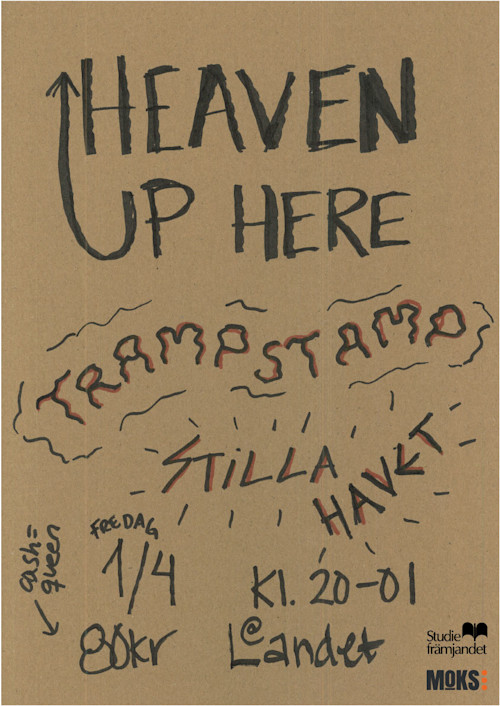 HEAVEN
UP HERE
TRAMPSTAMP
STILLA
HAVET
FREDAG
1/4
Kl. 20-01
cash=
queen
80kr
@
Landet
Studie
främjandet
MOKS